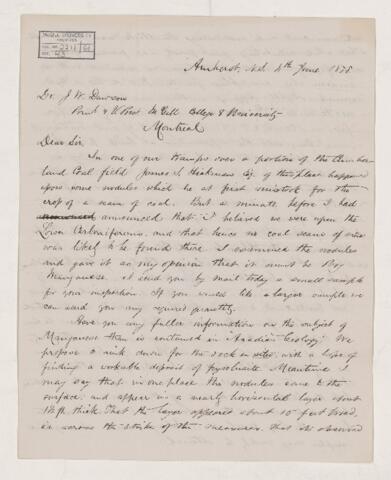 McGILL UNIVERSITY
ARCHIVES
ACC. NO. 2211/61
REF. 43
Amherst, N.S. 4th June 1878
Dr. J. W. Dawson
Princl & V. Pres. McGill College & University
Montreal
Dear Sir
In one of our tramps over a portion of the Cumber
land Coal field James S. Hickman Esq. of this place happened
upon some nodules which he at first mistook for the
crop of a seam of coal. But a minute before I had
announced that I believed we were upon the
Lower Carboniferous, and that hence no coal seams of size
was likely to be found there. I examined the nodules
and gave it as my opinion that it must be Bog
Manganese. I send you by mail today a small sample
for your inspection. If you would like a larger sample we
can send you any required quantity.
Have you any fuller information on the subject of
Manganese than is contained in "Acadian Geology". We
propose to sink down for the rock in situ, with a hope of
finding a workable deposit of Pyrolusite. Meantime I
may say that in one place the nodules came to the
surface, and appear in a nearly horizontal layer about
1½ ft thick. That the layer appeared about 10 feet broad,
i.e. across the strike of the measures, that it is observed